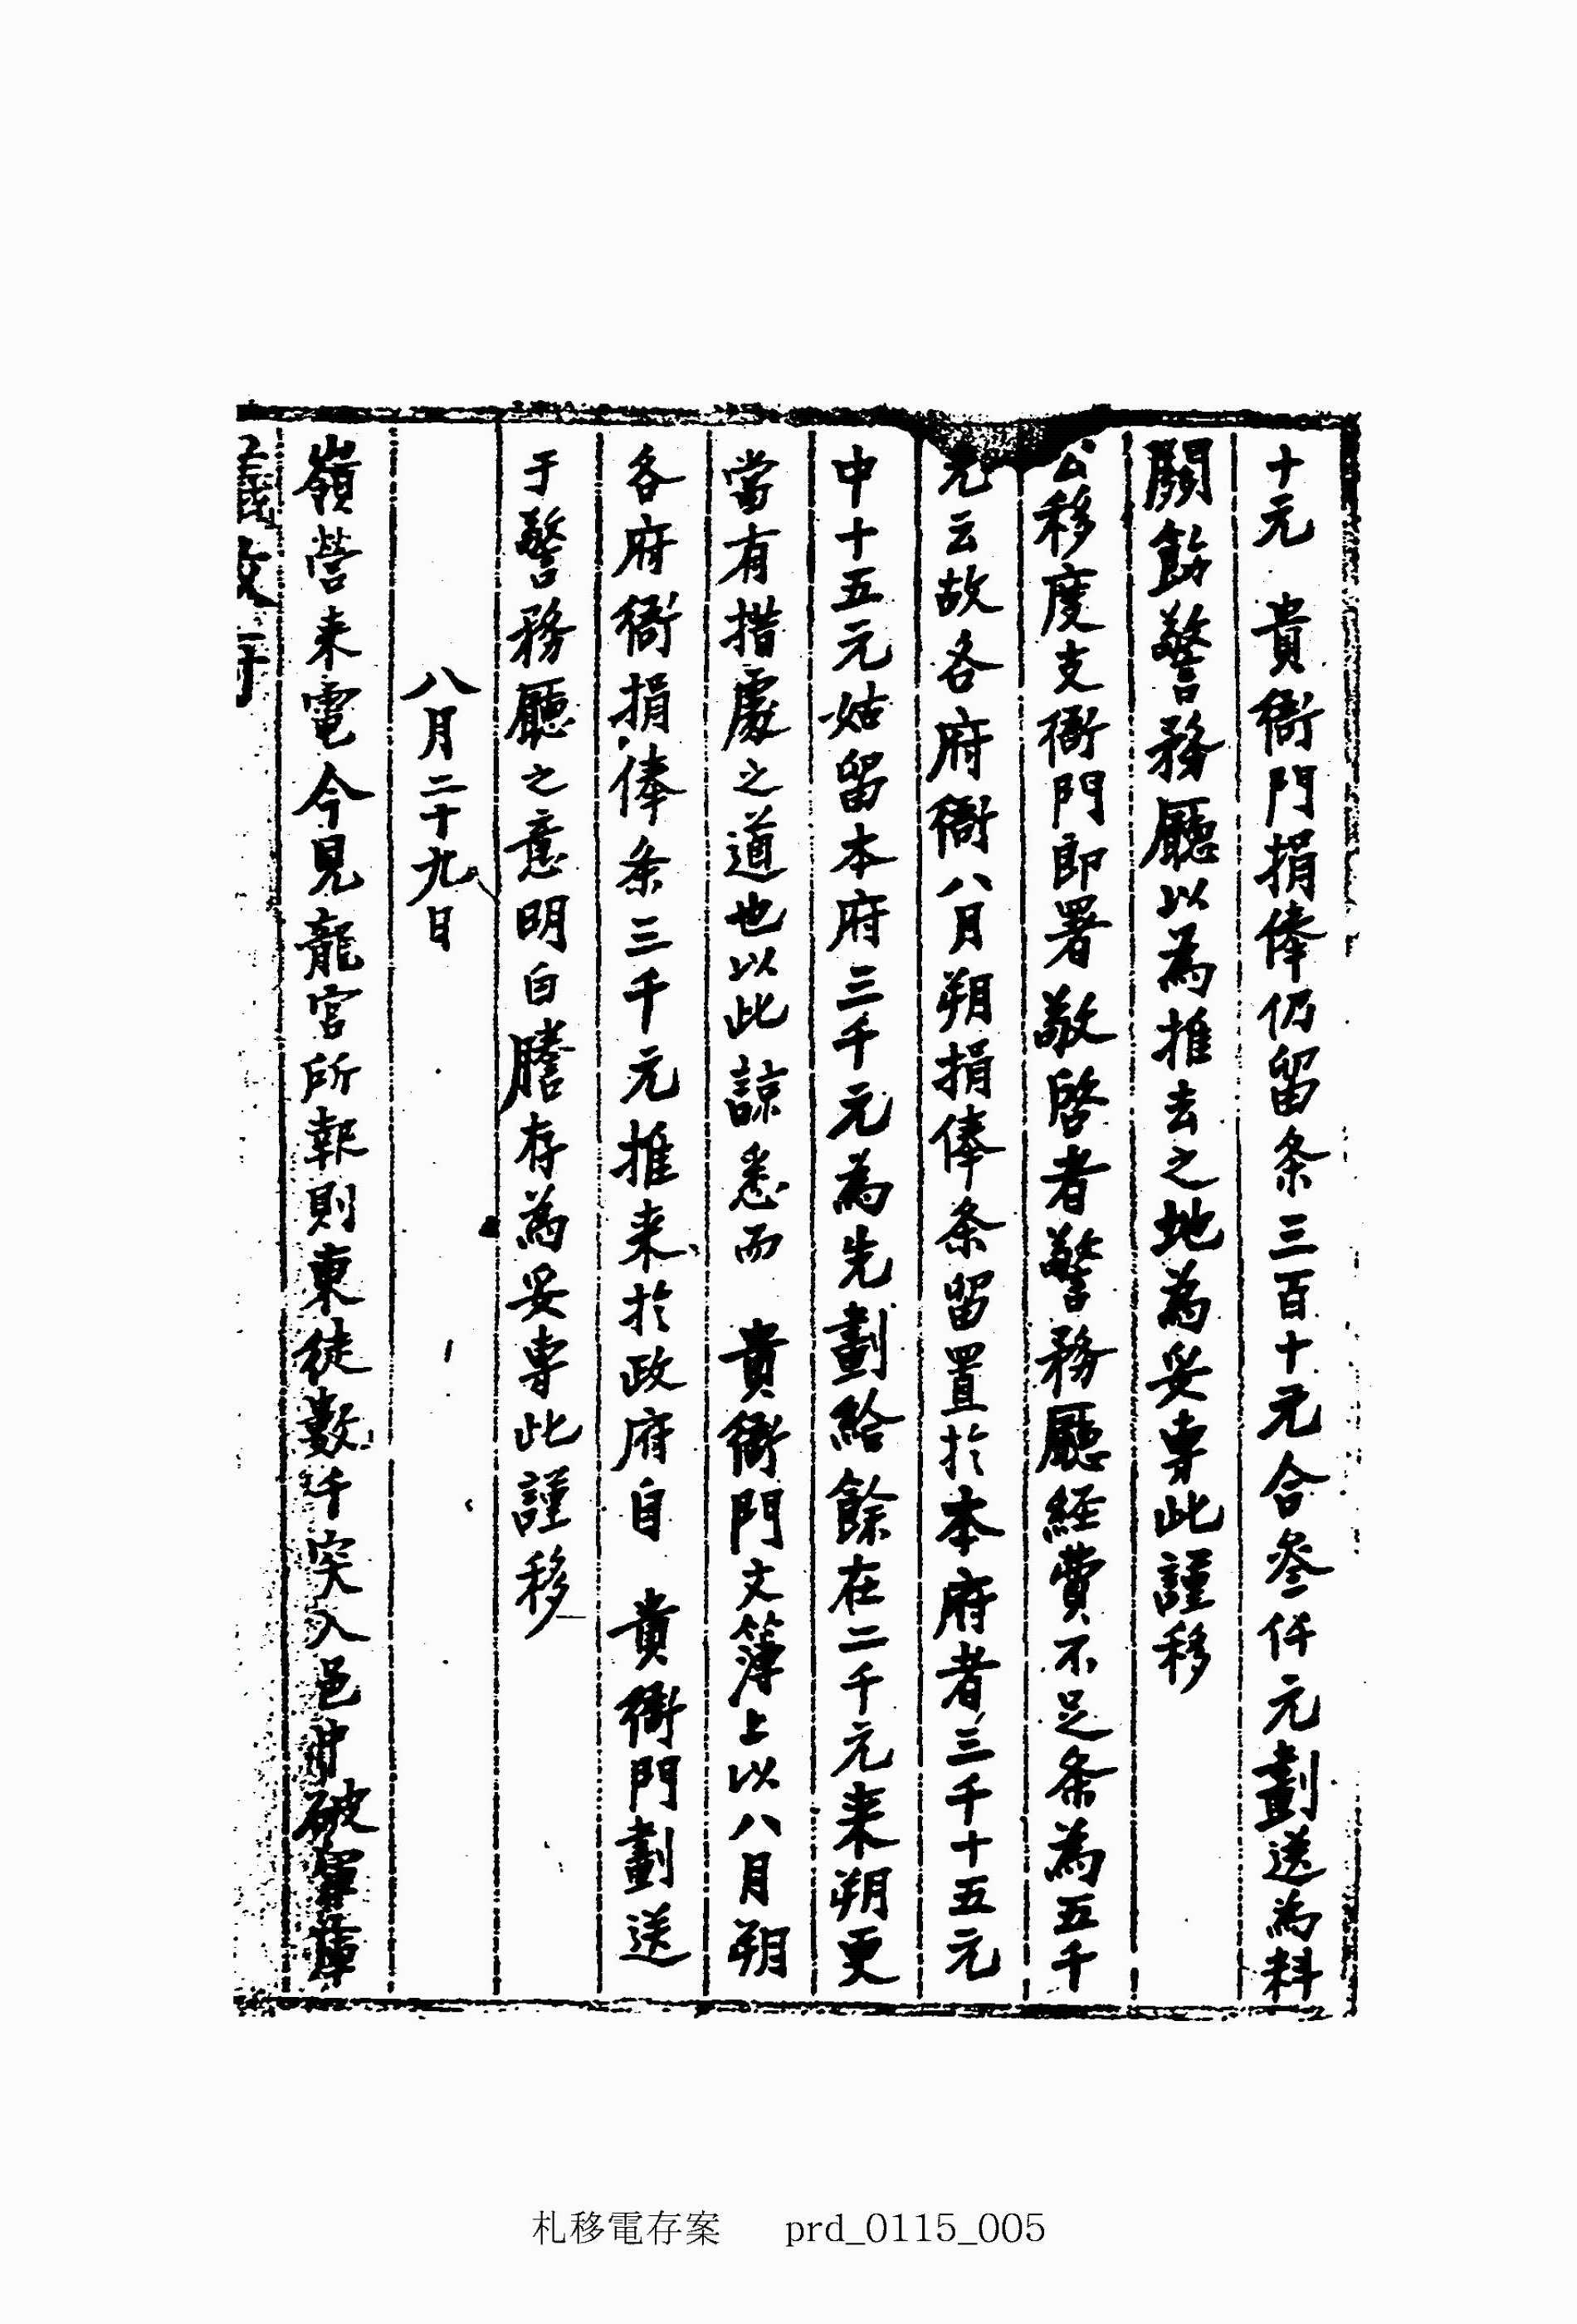 十元 貴衙門捐俸仍留条三百十元合叄仟元劃送為料
關飭警務廳以為推去之地為妥専此謹移
公移度支衙門即署敬啓者警務廳經費不足条為五千
元云故各府衙八月朔捐俸条留置扵本府者三千十五元
中十五元姑留本府三千元為先劃給餘在二千元来朔更
當有措處之道也以此諒悉而 貴衙門文簿上以八月朔
各府衙捐俸条三千元推来扵政府自 貴衙門劃送
于警務廳之意明白謄存為妥専此謹移
八月二十九日
嶺營来電今見龍宮所報則東徒數千突入邑中破軍庫
議政府
札移電存案 prd_0115_005